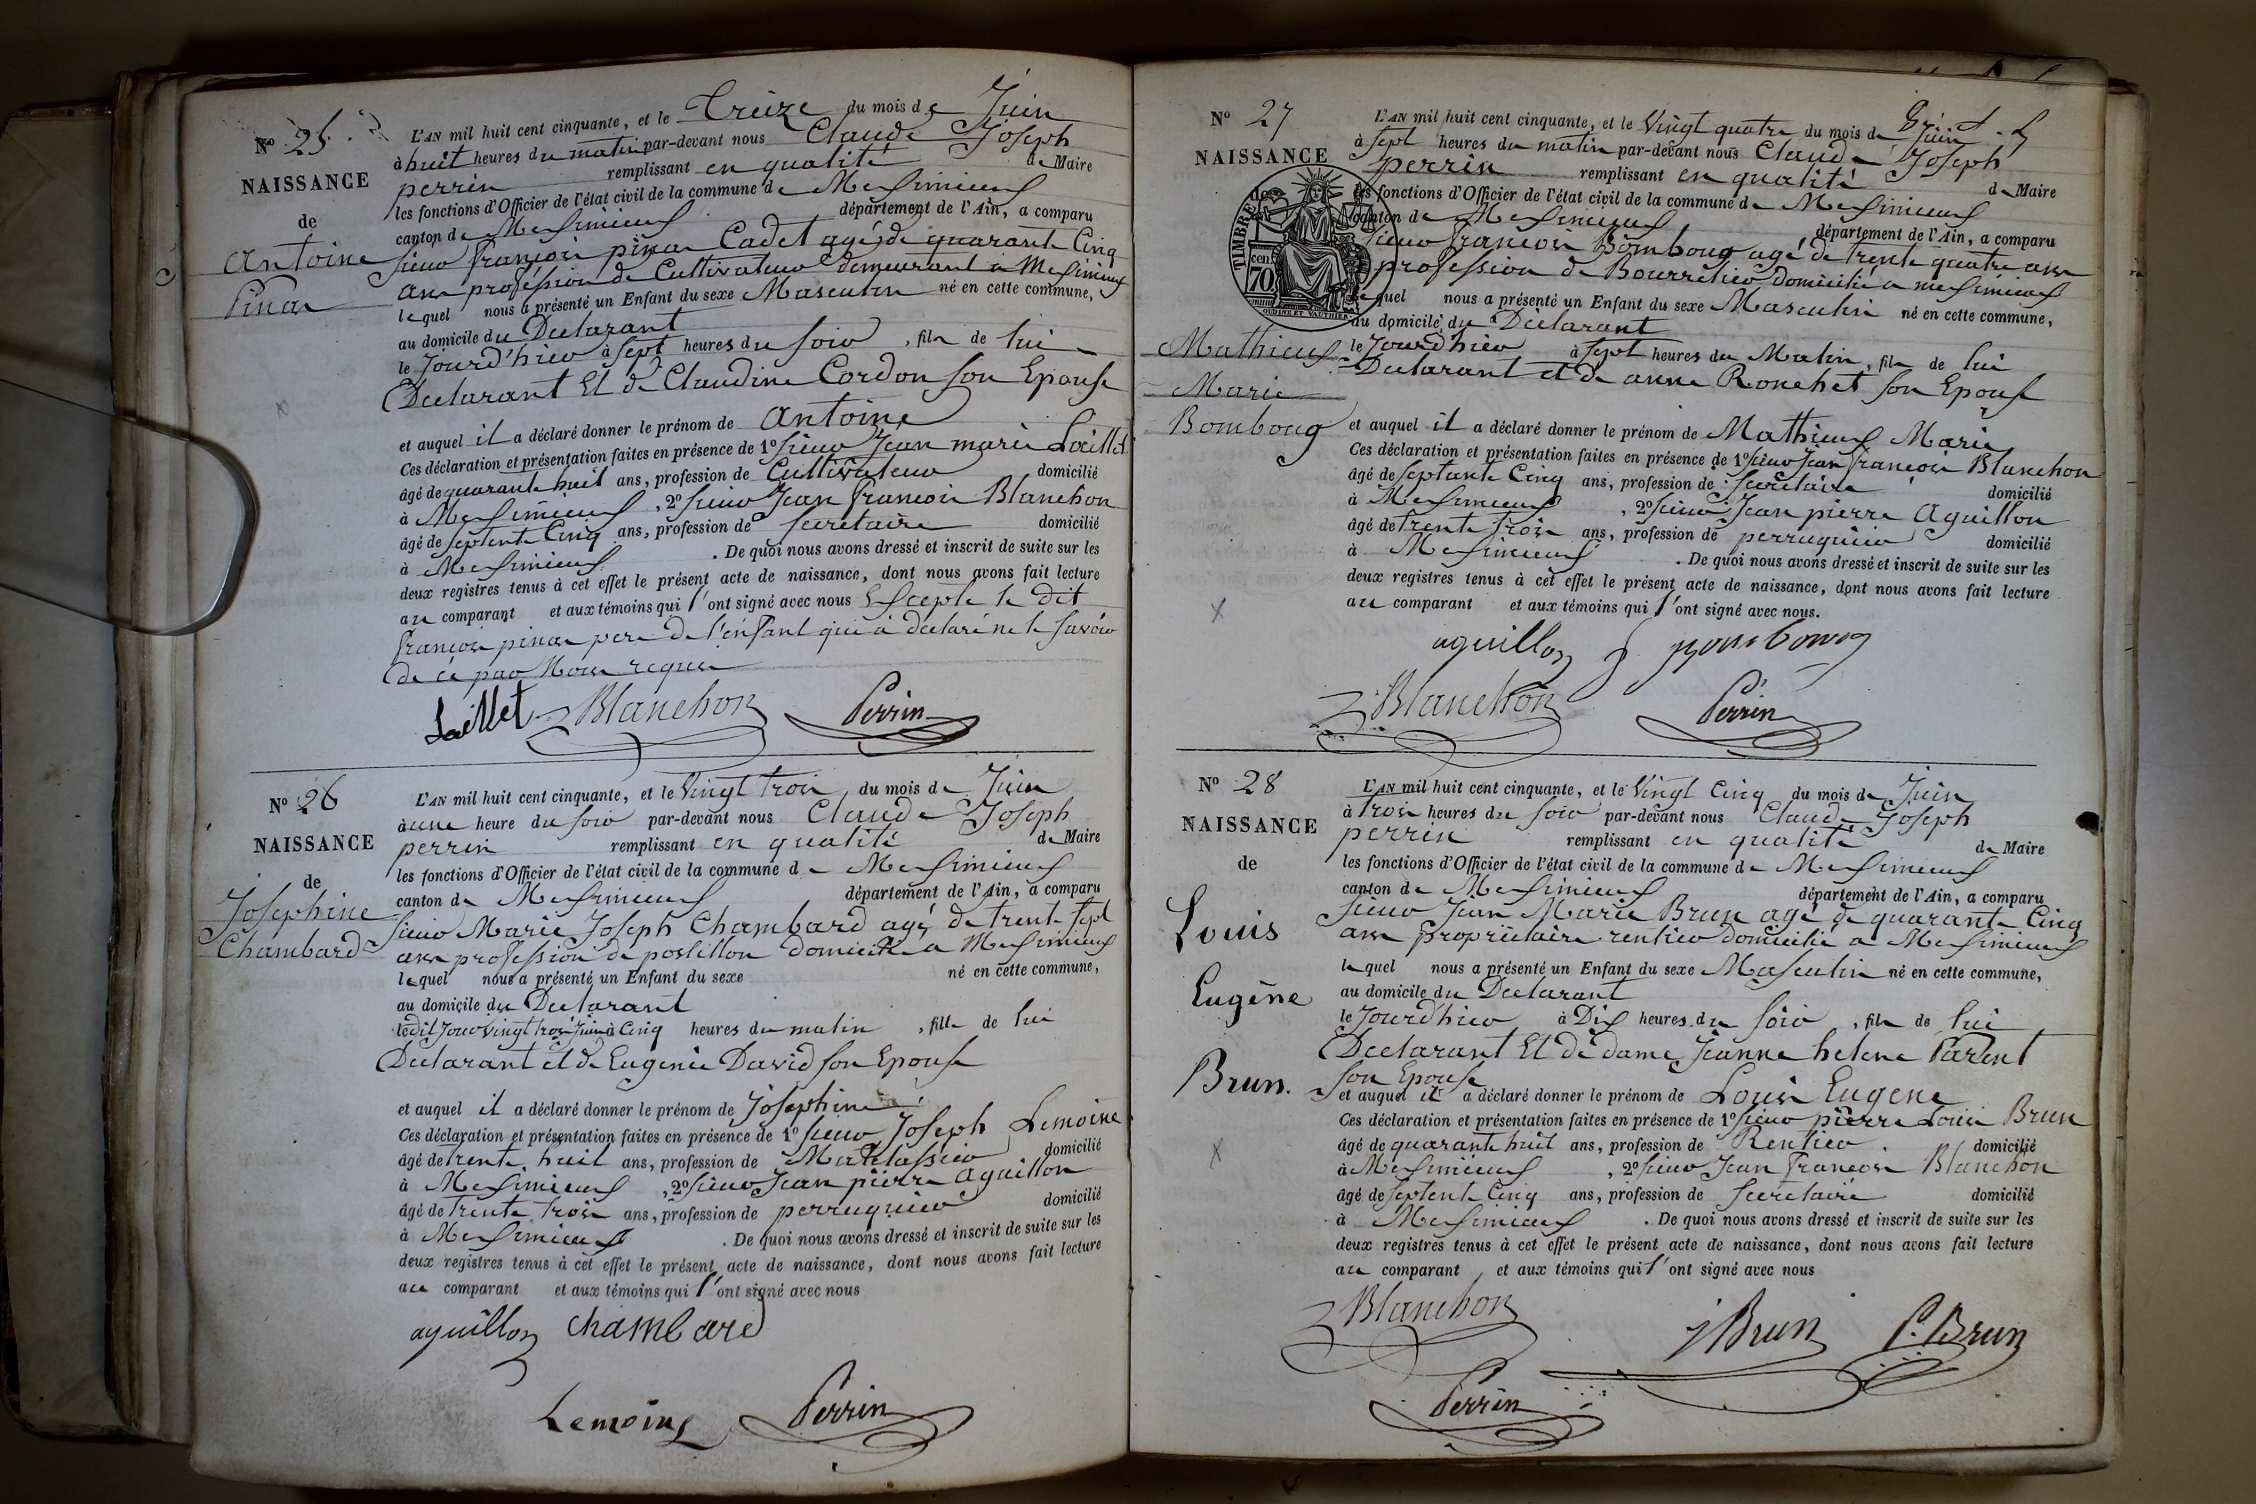 N° 25.
NAISSANCE
de
Antoine
Pinar
L'AN mil huit cent cinquante, et le Treize du mois de Juin
à huit heures du matin par-devant nous Claude Joseph
perrin remplissant en qualité de Maire
les fonctions d'Officier de l'état civil de la commune de Meximieux
canton de Meximieux département de l'Ain, a comparu
sieur françois pinar Cadet agé de quarante Cinq
ans profession de Cultivateur demeurant à Meximieux
lequel nous a présenté un Enfant du sexe Masculin né en cette commune,
au domicile du Declarant
le Jourd'hier à sept heures du soir, fils de lui
Declarant Et de Claudine Cordon son Epouse
et auquel il a déclaré donner le prénom de Antoine
Ces déclaration et présentation faites en présence de 1° sieur Jean marie Laillet
âgé de quarante huit ans, profession de Cultivateur domicilié
à Meximieux, 2° sieur Jean françois Blanchon
âgé de septente Cinq ans, profession de secretaire domicilié
à Meximieux. De quoi nous avons dressé et inscrit de suite sur les
deux registres tenus à cet effet le présent acte de naissance, dont nous avons fait lecture
au comparant et aux témoins qui l'ont signé avec nous Excepte le dit
françois pinar pere de l'enfant qui à declaré ne le savoir
de ce par Nous requis
Laillet Blanchon Perrin
N° 26
NAISSANCE
de
Josephine
Chambard
L'AN mil huit cent cinquante, et le Vingt trois du mois de Juin
à une heure du soir par-devant nous Claude Joseph
perrin remplissant en qualité de Maire
les fonctions d'Officier de l'état civil de la commune de Meximieux
canton de Meximieux département de l'Ain, a comparu
sieur Marie Joseph Chambard agé de trente sept
ans profession de postillon domicilié a Meximieux
lequel nous a présenté un Enfant du sexe né en cette commune,
au domicile du Declarant
ledit Jour vingt trois Juin à Cinq heures du matin, fille de lui
Declarant et de Eugenie David son Epouse
et auquel il a déclaré donner le prénom de Josephine
Ces déclaration et présentation faites en présence de 1° sieur Joseph Lemoine
âgé de trente huit ans, profession de Matelassier domicilié
à Meximieux, 2° sieur Jean pierre Aguillon
âgé de trente trois ans, profession de perruquier domicilié
à Meximieux. De quoi nous avons dressé et inscrit de suite sur les
deux registres tenus à cet effet le présent acte de naissance, dont nous avons fait lecture
au comparant et aux témoins qui l'ont signé avec nous
aguillon Chambard
Lemoine Perrin
N° 27
NAISSANCE
de
TIMBRE
70 cen
OUDINE ET VAUTHIER
Mathieux
Marie
Bomboug
L'AN mil huit cent cinquante, et le Vingt quatre du mois de Juin
à sept heures du matin par-devant nous Claude Joseph
perrin remplissant en qualité de Maire
les fonctions d'Officier de l'état civil de la commune de Meximieux
canton de Meximieux département de l'Ain, a comparu
sieur françois Bomboug agé de trente quatre ans
profession de Bourrelier domicilié a meximieux
lequel nous a présenté un Enfant du sexe Masculin né en cette commune,
au domicile du Déclarant
le Jourd'hier à sept heures du Matin, fils de lui
Declarant et de anne Ronchet son Epouse
et auquel il a déclaré donner le prénom de Mathieux Marie
Ces déclaration et présentation faites en présence de 1° sieur Jean françois Blanchon
âgé de septante Cinq ans, profession de secretaire domicilié
à Meximieux, 2° sieur Jean pierre Aguillon
âgé de trente trois ans, profession de perruquier domicilié
à Meximieux. De quoi nous avons dressé et inscrit de suite sur les
deux registres tenus à cet effet le présent acte de naissance, dont nous avons fait lecture
au comparant et aux témoins qui l'ont signé avec nous.
aguillon
Blanchon Perrin
N° 28
NAISSANCE
de
Louis
Eugène
Brun.
L'AN mil huit cent cinquante, et le Vingt Cinq du mois de Juin
à trois heures du soir par-devant nous Claude Joseph
perrin remplissant en qualité de Maire
les fonctions d'Officier de l'état civil de la commune de Meximieux
canton de Meximieux département de l'Ain, a comparu
sieur Jean Marie Brun agé de quarante Cinq
ans propriètaire rentier domicilié a Meximieux
lequel nous a présenté un Enfant du sexe Masculin né en cette commune,
au domicile du Declarant
le Jourd'hier à Dix heures du soir, fils de lui
Declarant Et de dame Jeanne helene Parent
son Epouse
et auquel il a déclaré donner le prénom de Louis Eugene
Ces déclaration et présentation faites en présence de 1° sieur pierre Louis Brun
âgé de quarante huit ans, profession de Rentier domicilié
à Meximieux, 2° sieur Jean françois Blanchon
âgé de septente Cinq ans, profession de secretaire domicilié
à Meximieux. De quoi nous avons dressé et inscrit de suite sur les
deux registres tenus à cet effet le présent acte de naissance, dont nous avons fait lecture
au comparant et aux témoins qui l'ont signé avec nous
Blanchon J Brun P. Brun
Perrin